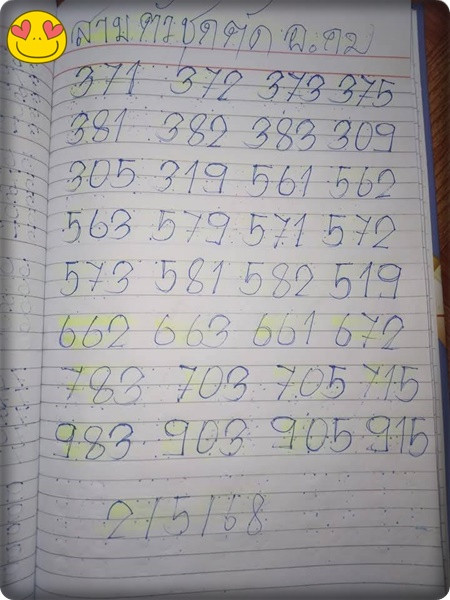 สามตัวชุดตัด อ.คม
371 372 373 375
381 382 383 309
305 319 561 562
563 579 571 572
573 581 582 519
662 663 661 672
783 703 705 715
983 903 905 915
2/5/68